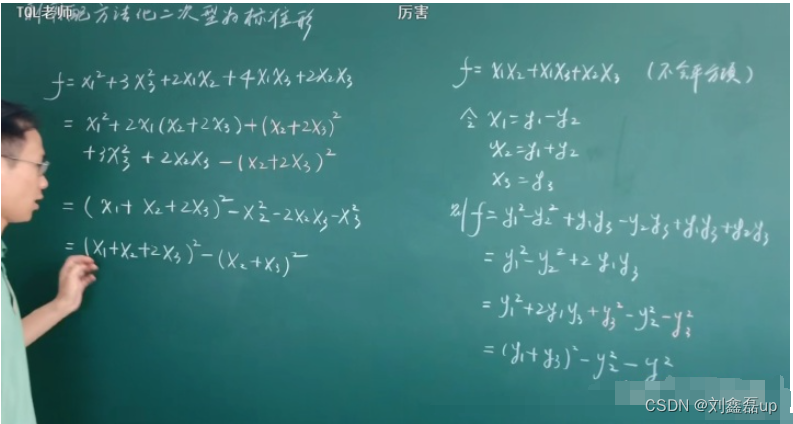 TQL老师
厉害
用配方法化二次型为标准形
f = x₁²+3x₃²+2x₁x₂+4x₁x₃+2x₂x₃
= x₁²+2x₁(x₂+2x₃)+(x₂+2x₃)²
+3x₃²+2x₂x₃-(x₂+2x₃)²
= (x₁+x₂+2x₃)²-x₂²-2x₂x₃-x₃²
= (x₁+x₂+2x₃)²-(x₂+x₃)²
f = x₁x₂+x₁x₃+x₂x₃ (不含平方项)
令 x₁=y₁-y₂
x₂=y₁+y₂
x₃=y₃
则f=y₁²-y₂²+y₁y₃-y₂y₃+y₁y₃+y₂y₃
= y₁²-y₂²+2y₁y₃
= y₁²+2y₁y₃+y₃²-y₂²-y₃²
= (y₁+y₃)²-y₂²-y²
CSDN @刘鑫磊up